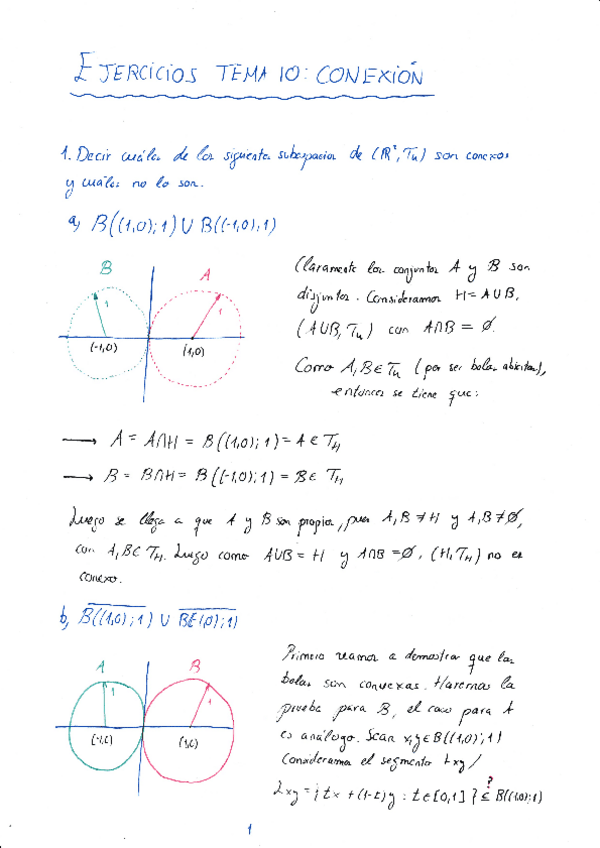 EJERCICIOS TEMA 10: CONEXIÓN
1. Decir cuáles de los siguientes subespacios de (ℝ², Tu) son conexos
y cuáles no lo son.
a) B((1,0);1) ∪ B((-1,0);1)
B
A
1
1
(-1,0)
(1,0)
Claramente los conjuntos A y B son
disjuntos. Consideramos H=A∪B,
(A∪B, Tu) con A∩B = ∅.
Como A,B∈Tu (por ser bolas abiertas),
entonces se tiene que:
→ A = A∩H = B((1,0);1) = A ∈ TH
→ B = B∩H = B((-1,0);1) = B∈ TH
Luego se llega a que A y B son propios, pues A,B≠H y A,B≠∅,
con A,B⊂TH. Luego como A∪B = H y A∩B=∅, (H,TH) no es
conexo.
b)
A
B
1
1
(-1,0)
(1,0)
Primero veamos a demostrar que las
bolas son convexas. Haremos la
prueba para B, el caso para A
es análogo. Sean x,y∈B((1,0);1)
Consideramos el segmento Lxy/
Lxy = {tx + (1-t)y : t∈[0,1]} ⊆? B((1,0);1)
1